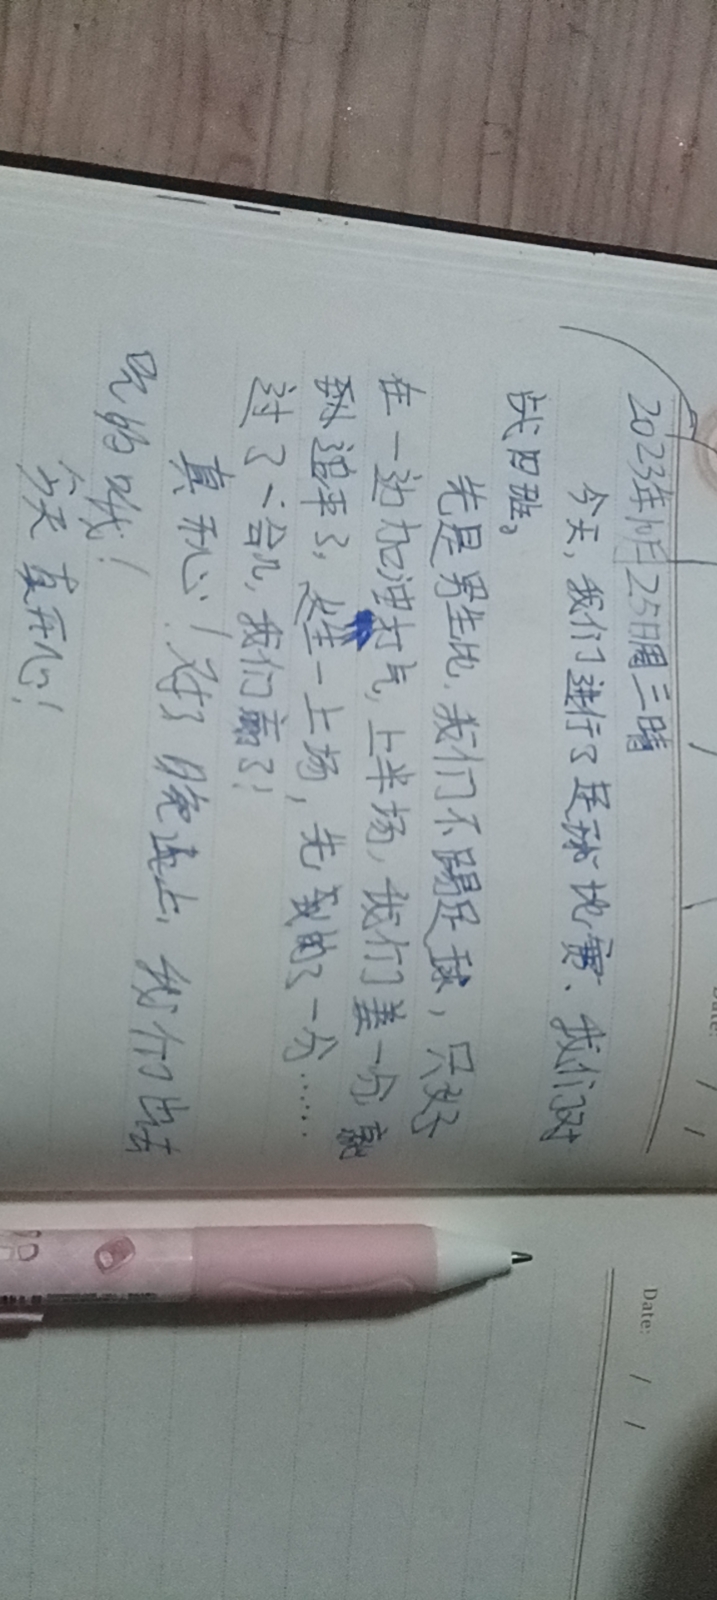 2023年10月25日周三晴
今天,我们进行了足球比赛.我们对
战四班。
先是男生比,我们不踢足球,只好
在一边加油打气,上半场,我们差一分就
到追平了,女生一上场,先到的了一分……
过了一会儿,我们赢了!
真开心!对了晚上,我们出去
吃的哦!
今天真开心!
Date: / /
Date: / /